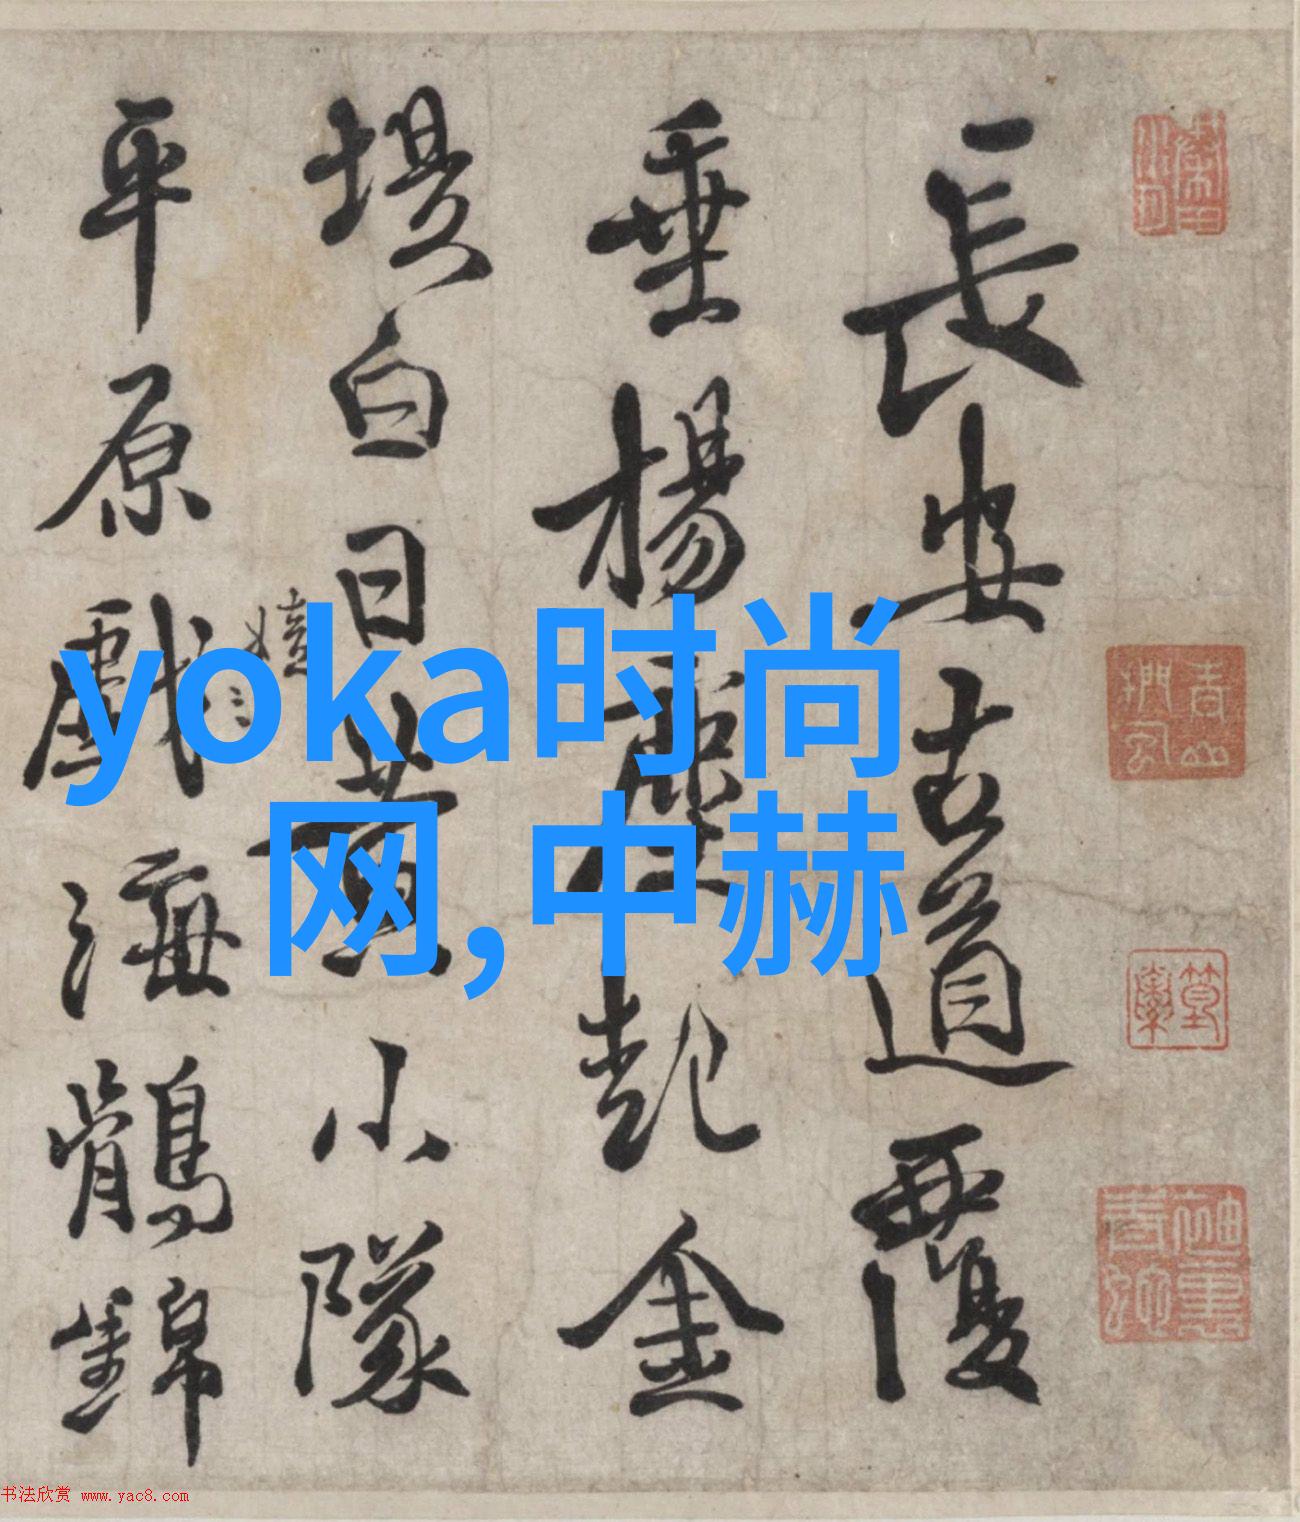 長安古道覆
垂楊塵起金
堤白日黄小隊
平原戲海鶻錦
yoka时尚
网,中赫
书法欣赏 www.yac8.com